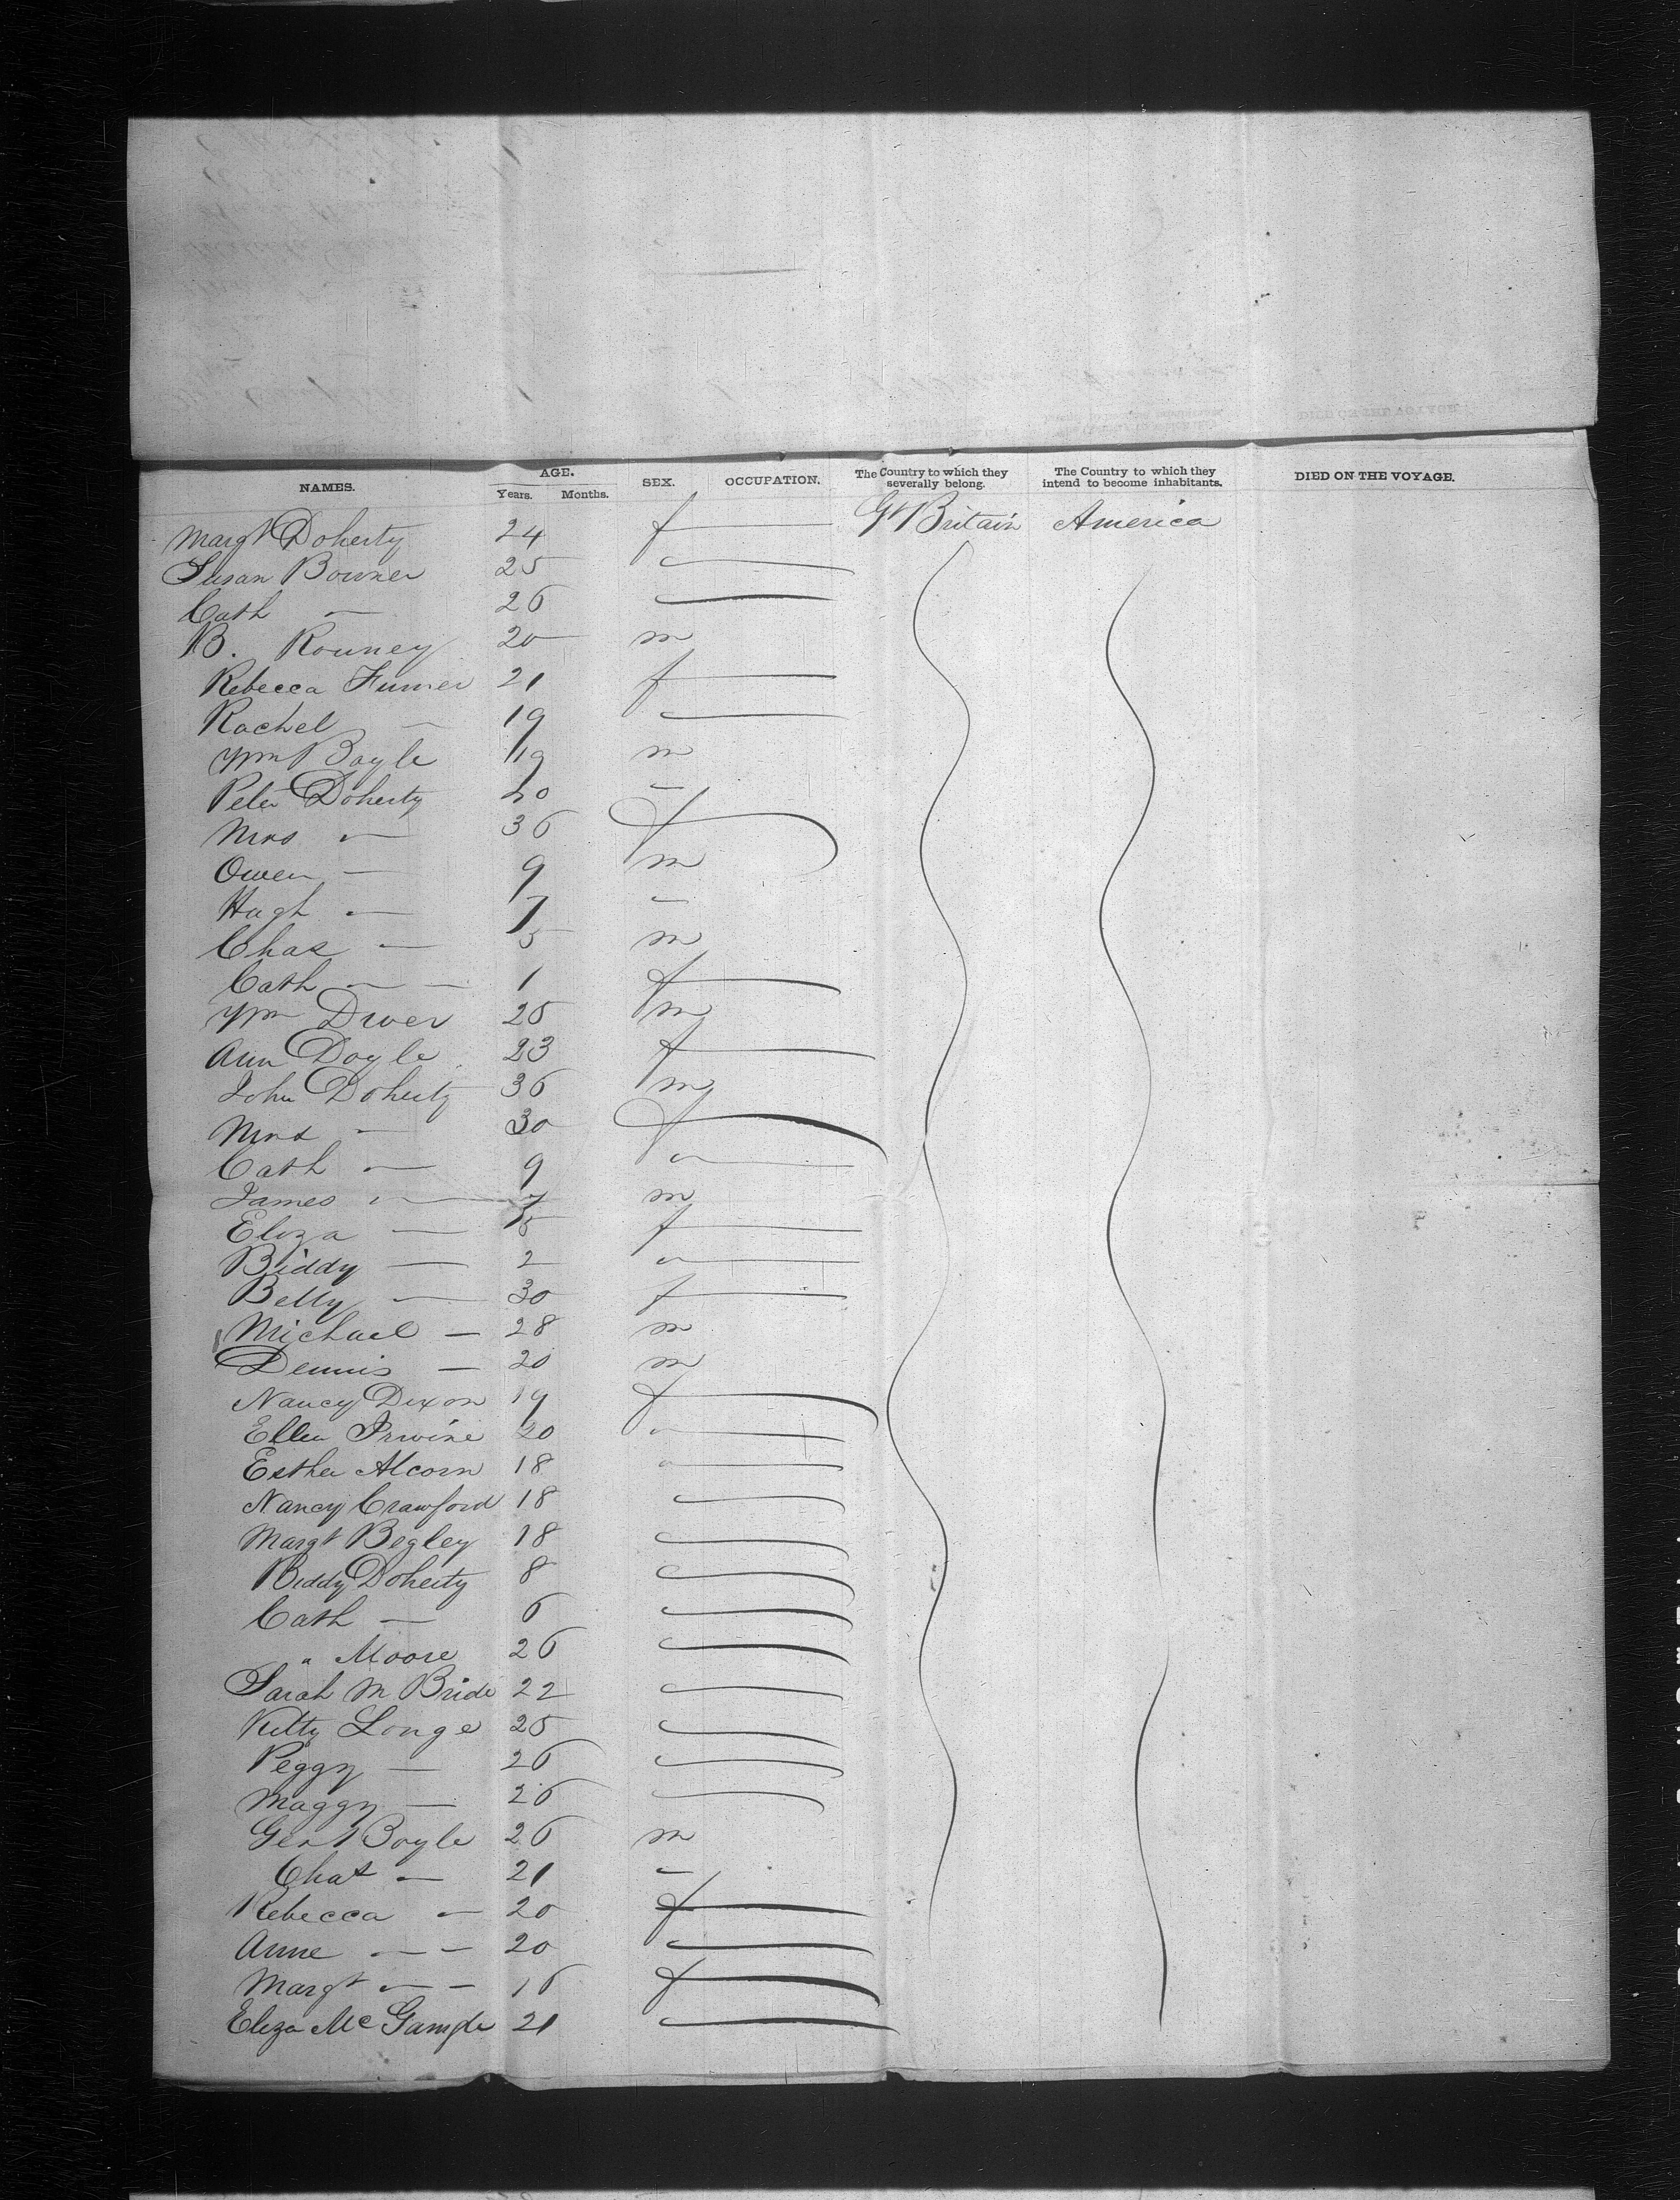 NAMES. AGE. Years. Months. SEX. OCCUPATION. The Country to which they severally belong. The Country to which they intend to become inhabitants. DIED ON THE VOYAGE.
Margt Doherty 24 f Gt Britain America
Susan Bowner 25
Cath — 26
B. Rouney 20 m
Rebecca 21 f
Rachel — 19
Wm Boyle 19 m
Peter Doherty 20 —
Mrs — 36 f
Owen — 9 m
Hugh — 7 —
Chas — 5 m
Cath — — 1 f
Wm Diver 25 m
Ann Doyle 23 f
John Doherty 36 m
Mrs — 30 f
Cath — 9 "
James " — 7 m
Eliza — 5 f
Biddy — 2 "
Betty — 30 f
Michael — 28 m
Dennis — 20 m
Nancy Dixon 19 f
Ellen Irwine 20 "
Esther Alcorn 18 "
Nancy Crawford 18
Margt Begley 18
Biddy Doherty 8
Cath — 6
" Moore 26
Sarah M Bride 22
Kitty Longe 25
Peggy — 26
Maggy — 26
Boyle 26 m
Chas — 21 —
Rebecca — 20 f
Anne — — 20
Margt — — 16 f
Eliza Mc 21